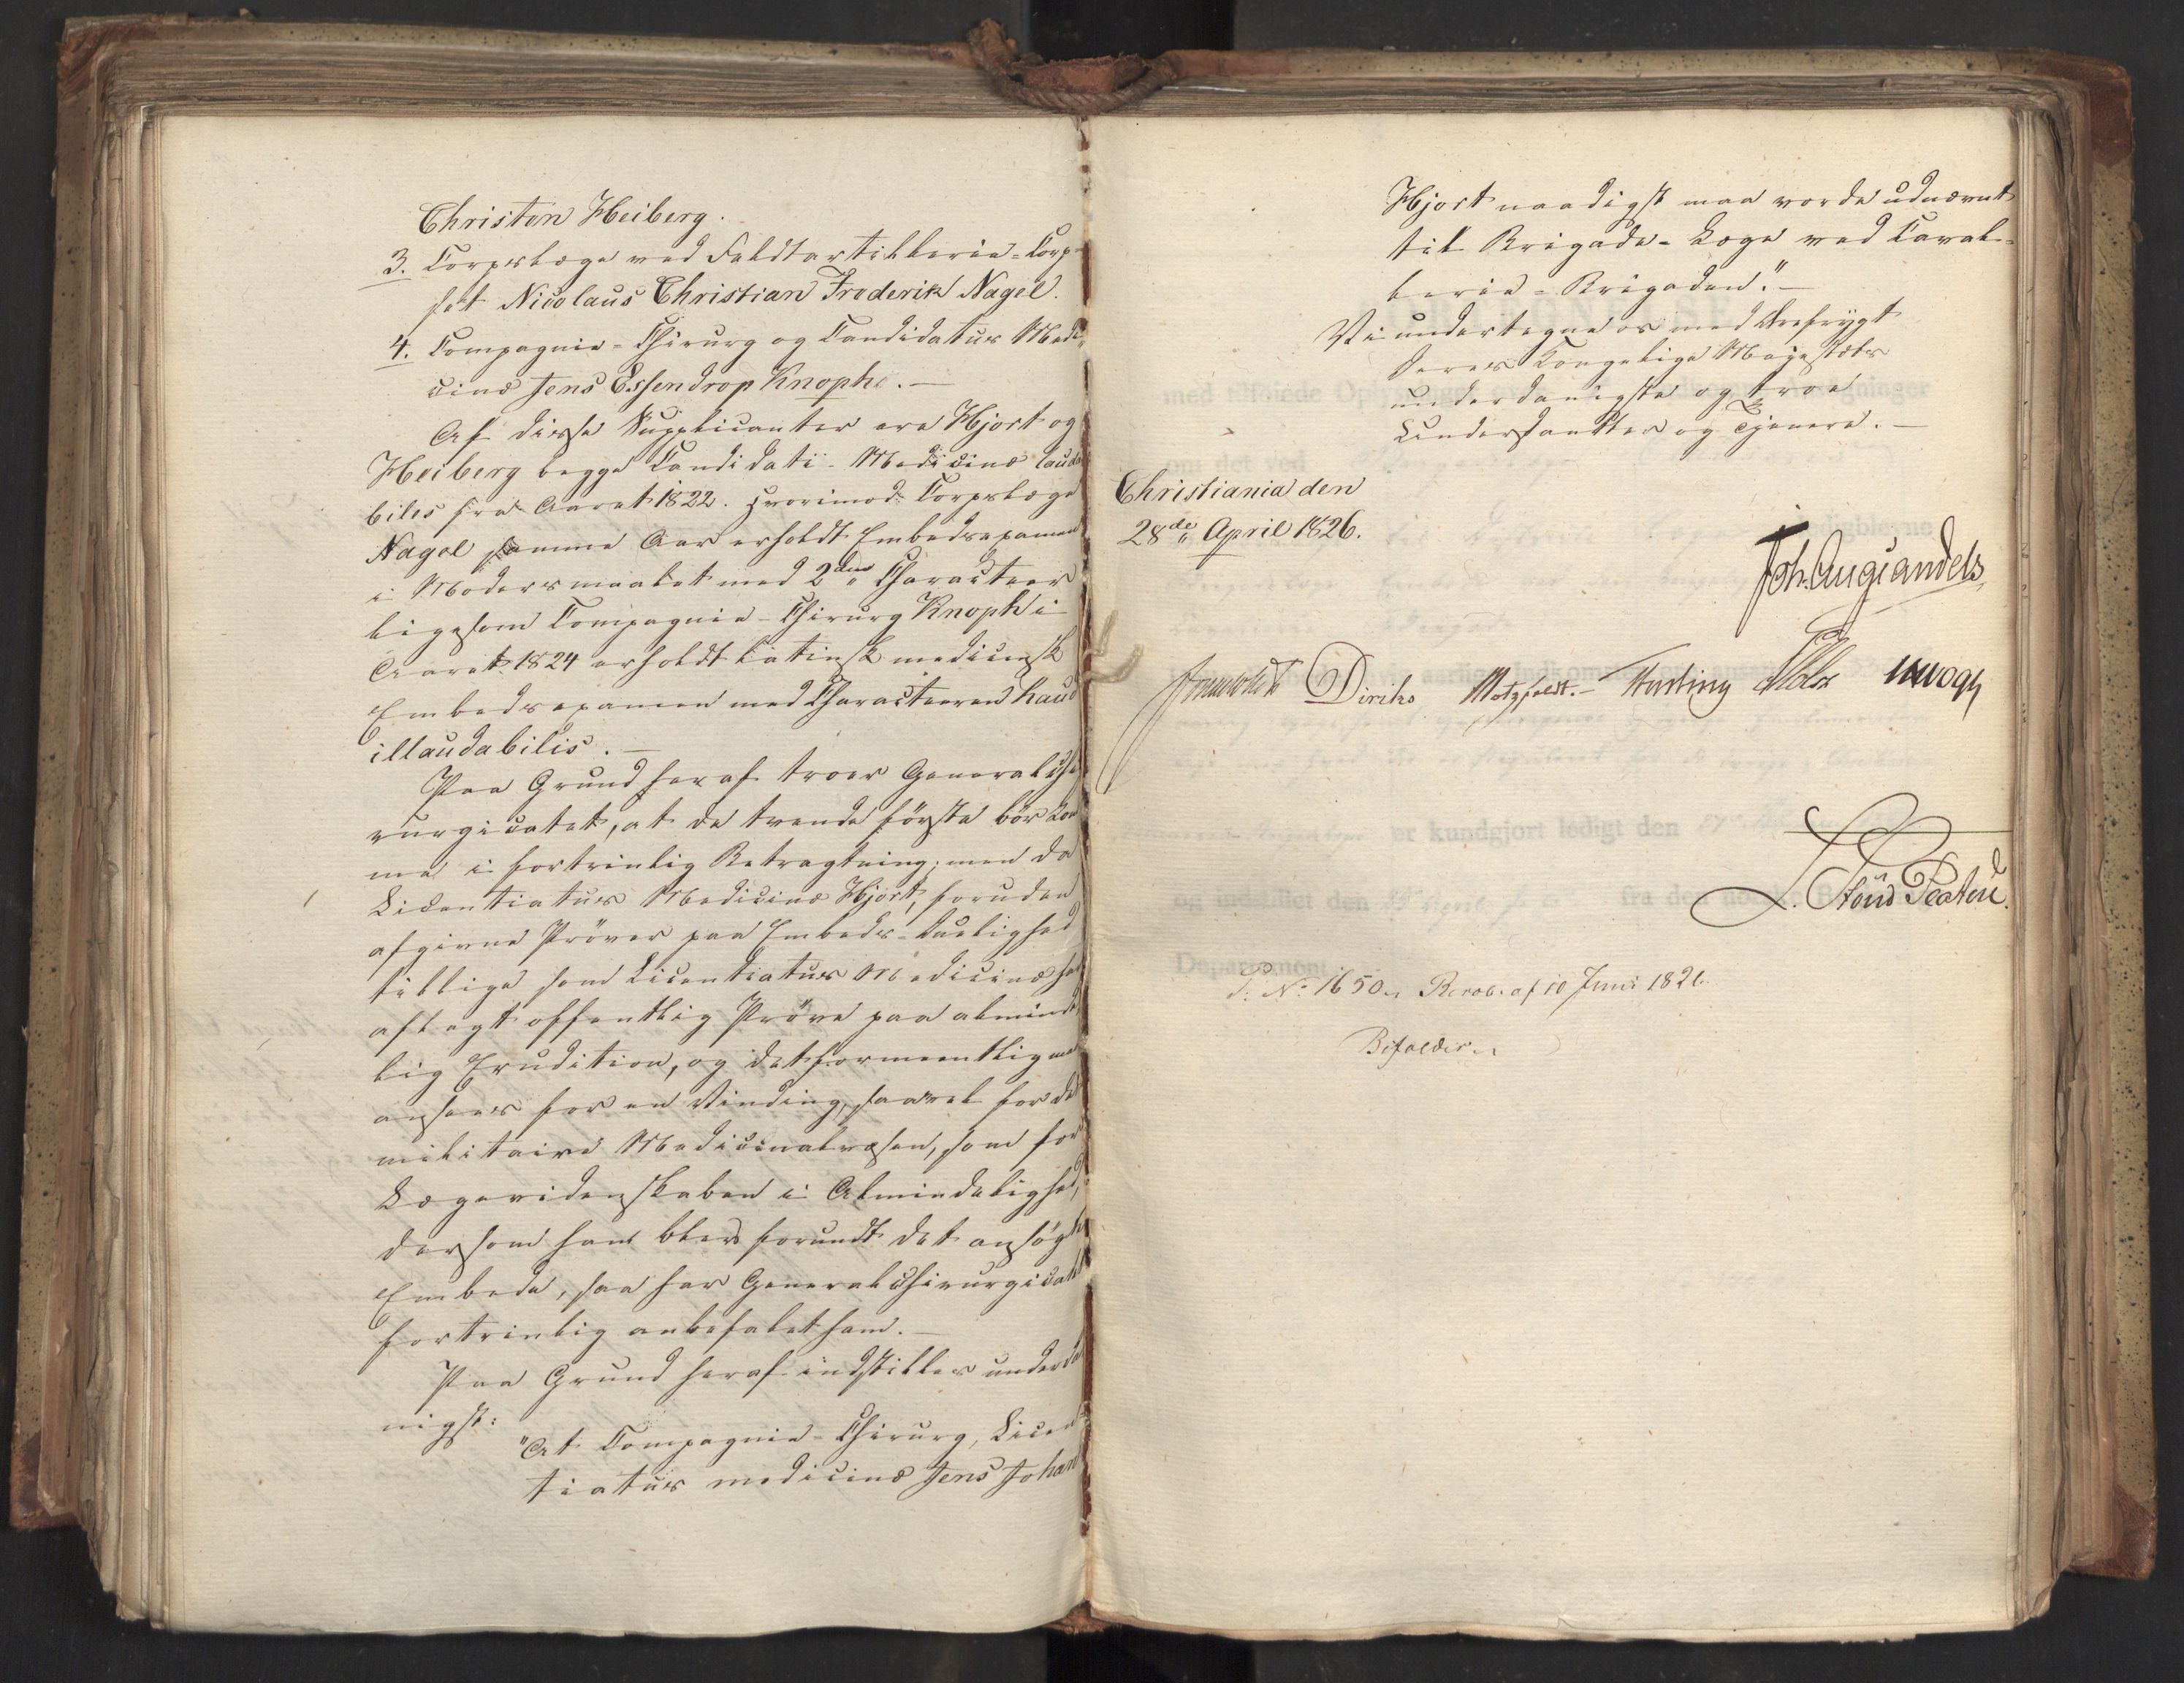 Christen Heiberg.
3. Corpslæge ved Feldtartillerie-Corp-
set Nicolaus Christian Frederik Nagel.
4. Compagnie-Chirurg og Candidatus Medi-
cinæ Jens Essendrop Knoph. —
Af disse Supplicanter ere Hjort og
Heiberg begge Candidati Medicinæ lauda
biles fra Aaret 1822. Hvorimod Corpslæge
Nagel samme Aar erholdt Embedsexamen
i Modersmaalet med 2den Characteer
ligesom Compagnie-Chirurg Knoph i
Aaret 1824 erholdt latinsk medicinsk
Embedsexamen med Characteren haud
illaudabilis. —
Paa Grund heraf troer Generalchi
rurgicatet, at de tvende förste bör kom
me i fortrinlig Betragtning; men da
Licentiatus Medicinæ Hjort, foruden
afgivne Pröver paa Embeds-Duelighed
tillige som Licentiatus Medicinæ har
aflagt offentlig Pröve paa alminde
lig Erudition, og det formeentlig maa
ansees for en Vinding, saavel for det
militaire Medicinalvæsen, som for
Lægevidenskaben i Almindelighed,
dersom ham blev forundt det ansögte
Embede, saa har Generalchirurgicatet
fortrinlig anbefalet ham. —
Paa Grund heraf indstilles underda
nigst:
"At Compagnie-Chirurg, Licen
tiatus medicinæ Jens Johan
Hjort naadigst maa vorde udnævnt
til Brigade-Læge ved Caval-
lerie-Brigaden". —
Vi undertegne os med Ærefrygt
Deres Kongelige Majestæts
underdanigste og troe
Undersaatter og Tjenere. —
Christiania den
28de April 1826.
Joh. Aug. Sandels
Diriks Motzfeldt. — Fasting
L. Stoud Platou.
J. No 1650. Resol. af 10 Juni 1826.
Bifaldes.
med tilföiede Oplysninger
som det ved
er kundgjort ledigt den
og indstillet den fra det norske
Departement